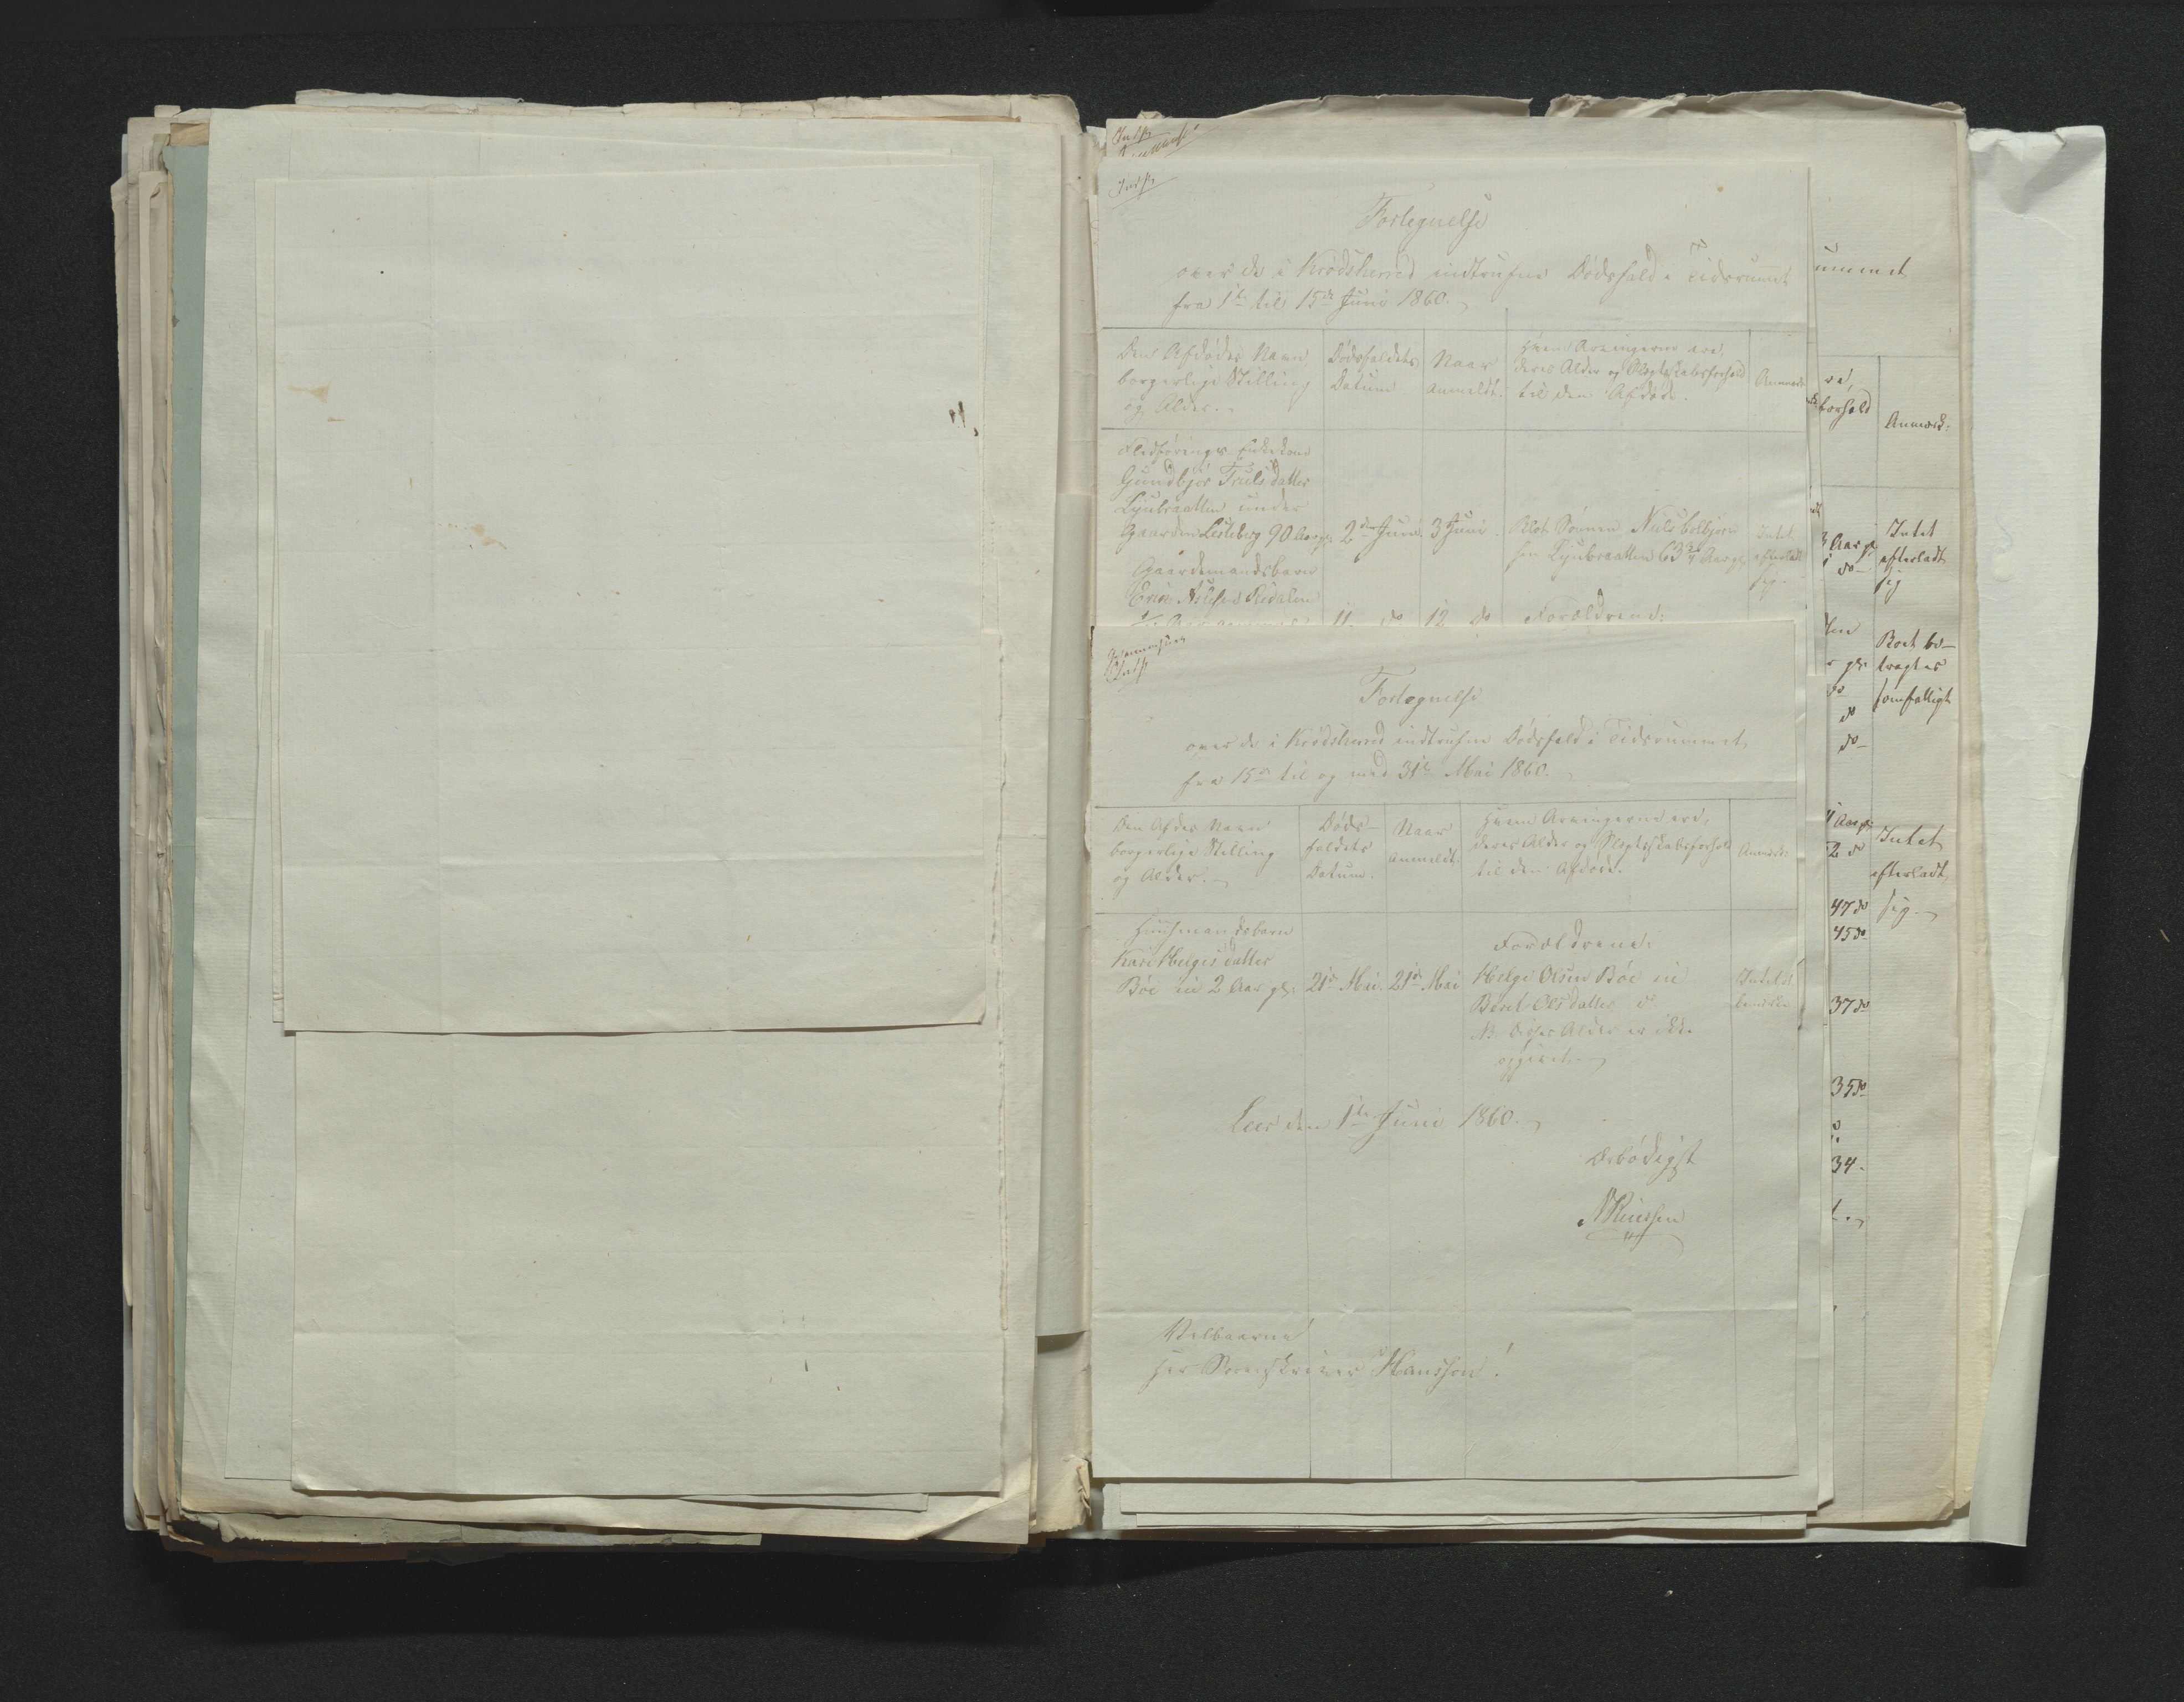 Indf.
Indf.
Fortegnelse
over de i Krødsherred indtrufne Dødsfald i Tidsrummet
fra 1te til 15de Juni 1860.
Den Afdødes Navn
borgerlige Stilling
og Alder.
Dødsfaldets
Datum
Naar
anmeldt.
Hvem Arvingerne ere,
deres Alder og Slegtskabsforhold
til den Afdøde.
Anmærk:
Enkekone
Gundbjør Truls datter
Ljubraatten under
Gaarden Lesteberg 90 Aar gl:
2den Juni
3 Juni
Sønnen Niels
sen Ljubraatten 63 3/4 Aar gl:
Intet
efterladt
sig.
Gaardemandsbarn
11. do
12 do
Forældrene:
Indf.
Fortegnelse
over de i Krødsherred indtrufne Dødsfald i Tidsrummet,
fra 15de til og med 31te Mai 1860.
Den Afdøs Navn
borgerlige Stilling
og Alder.
Døds-
faldets
Datum.
Naar
anmeldt.
Hvem Arvingerne ere,
deres Alder og Slegtskabsforhold
til den Afdøde.
Anmærk:
Huusmandsbarn
Kari Helges datter
Bøe eie 2 Aar gl:
21de Mai.
21de Mai
Forældrene:
Helge Olsen Bøe eie
Berit Olsdatter do
NB Disses Alder er ikke
opgivet.
Leer den 1te Juni 1860.
Ærbødigst
Velbaarne
Her Sorenskriver Hansson!
ummet
re,
forhold
Anmærk:
3 Aar gl
do
Intet
efterladt
sig
Boet be-
tragtes
somfattigt
do
do
Aar gl:
2 do
Intet
efterladt
sig.
47 do
45 do
37 do
35 do
34.